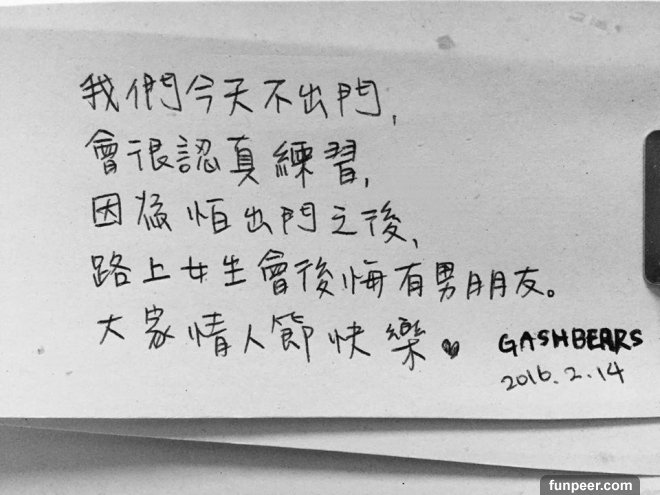 我們今天不出門,
會很認真練習,
因為怕出門之後,
路上女生會後悔有男朋友。
大家情人節快樂♥
GASHBEARS
2016.2.14
funpeer.com